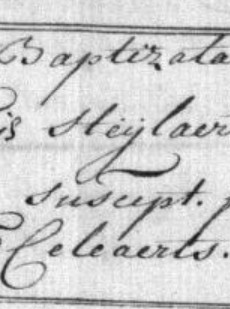 Baptizata
is Heylaer
suscept.
Celeaerts.